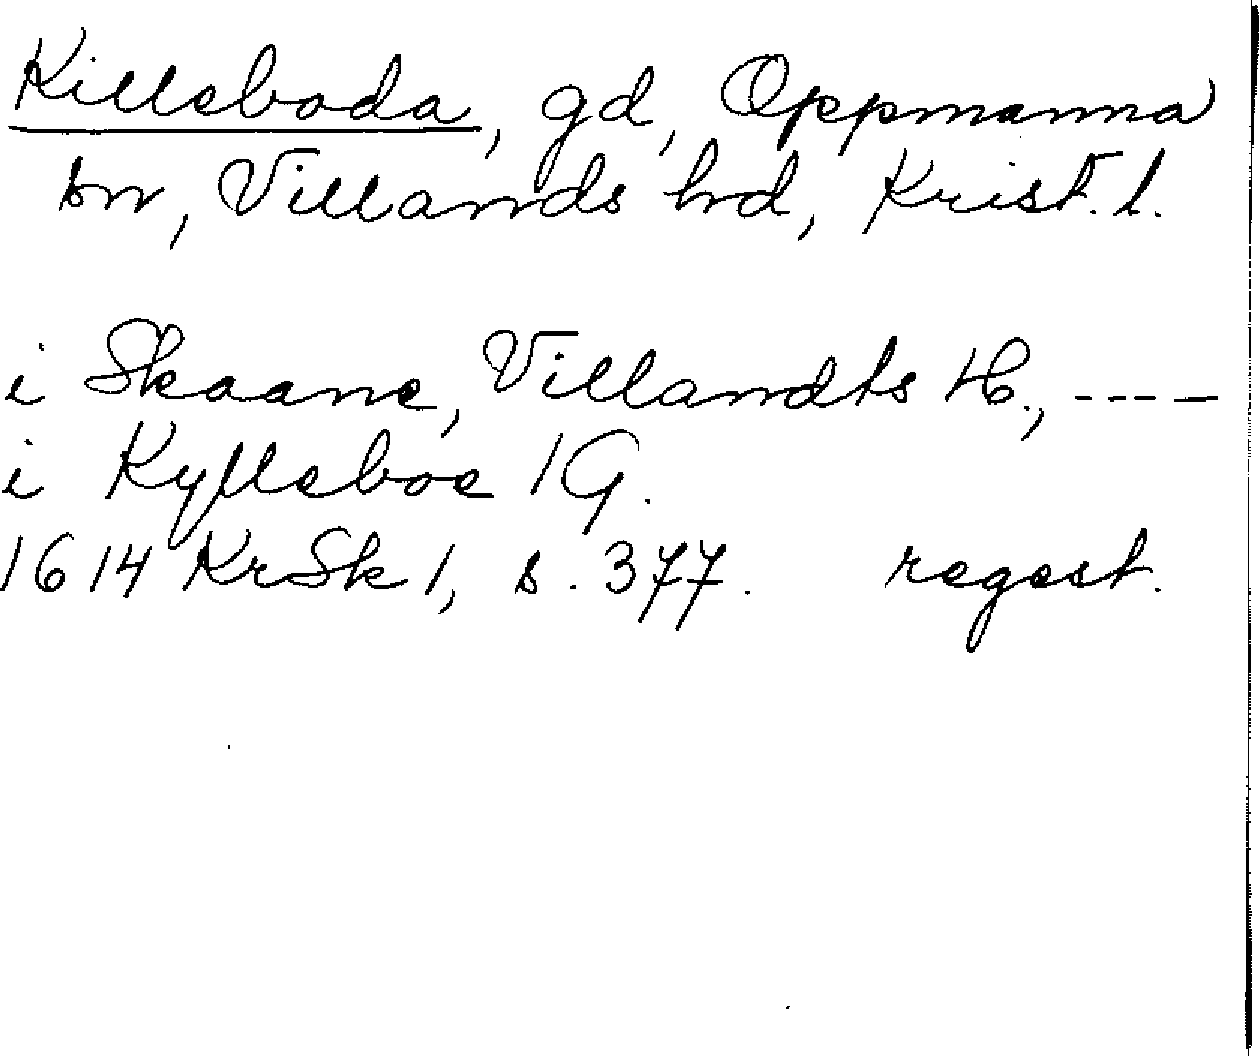 Killeboda, gd, Oppmanna
sn, Villands hd, Krist. l.
i Skaane, Villandts H., ----
i Kylleboe 1 G.
1614 KrSk 1, s. 377. regest.